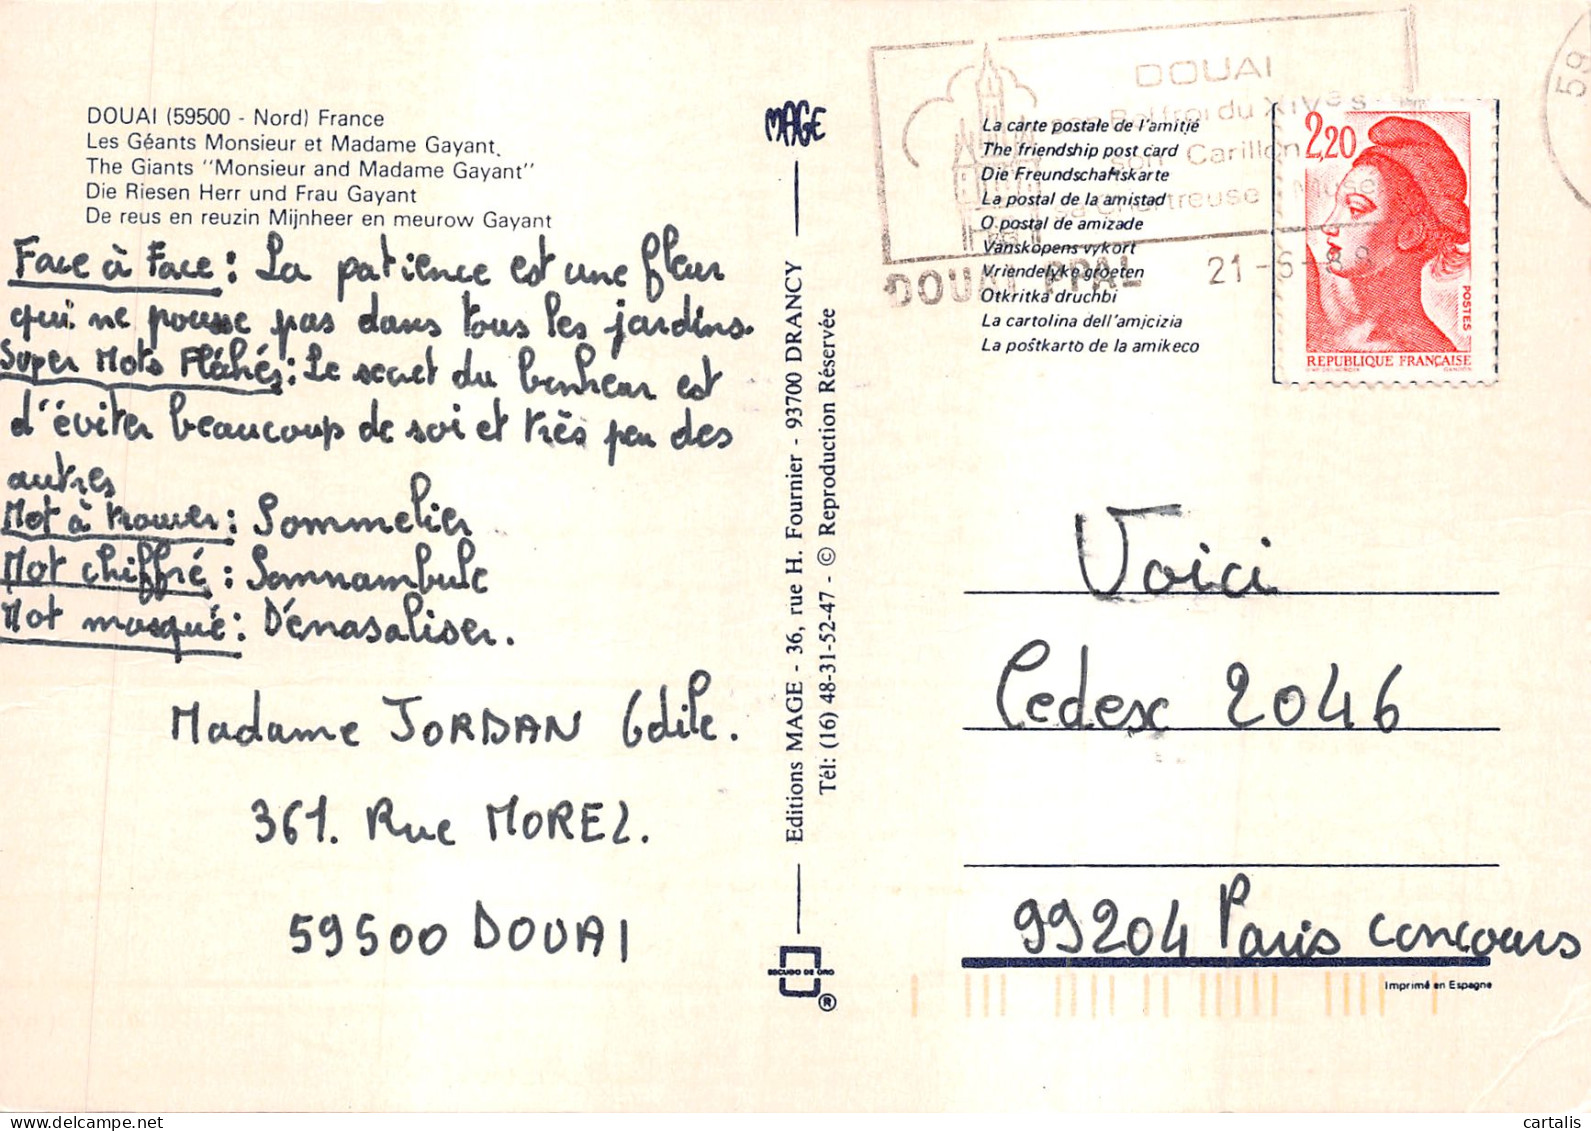 DOUAI (59500 - Nord) France
Les Géants Monsieur et Madame Gayant.
The Giants "Monsieur and Madame Gayant"
Die Riesen Herr und Frau Gayant
De reus en reuzin Mijnheer en meurow Gayant
Face à Face : La patience est une fleur
qui ne pousse pas dans tous les jardins.
Super Mots Fléchés : Le secret du bonheur est
d'éviter beaucoup de soi et très peu des
autres
Mot à trouver : Sommelier
Mot chiffré : Somnambule
Mot masqué : Dénasaliser.
Madame JORDAN Odile.
361. Rue MOREL.
59500 DOUAI
MAGE
Editions MAGE - 36, rue H. Fournier - 93700 DRANCY
Tél: (16) 48-31-52-47 - © Reproduction Réservée
ESCUDO DE ORO
®
La carte postale de l'amitié
The friendship post card
Die Freundschaftskarte
La postal de la amistad
O postal de amizade
Vanskopens vykort
Vriendelyke groeten
Otkritka druchbi
La cartolina dell'amicizia
La poŝtkarto de la amikeco
DOUAI
son Beffroi du XIVe s
son Carillon
sa Chartreuse Musée
DOUAI PPAL
21-6-88
59
2,20
POSTES
REPUBLIQUE FRANÇAISE
D'AP. DELACROIX GANDON
Voici
Cedex 2046
99204 Paris concours
Imprimé en Espagne
cartalis
delcampe.net